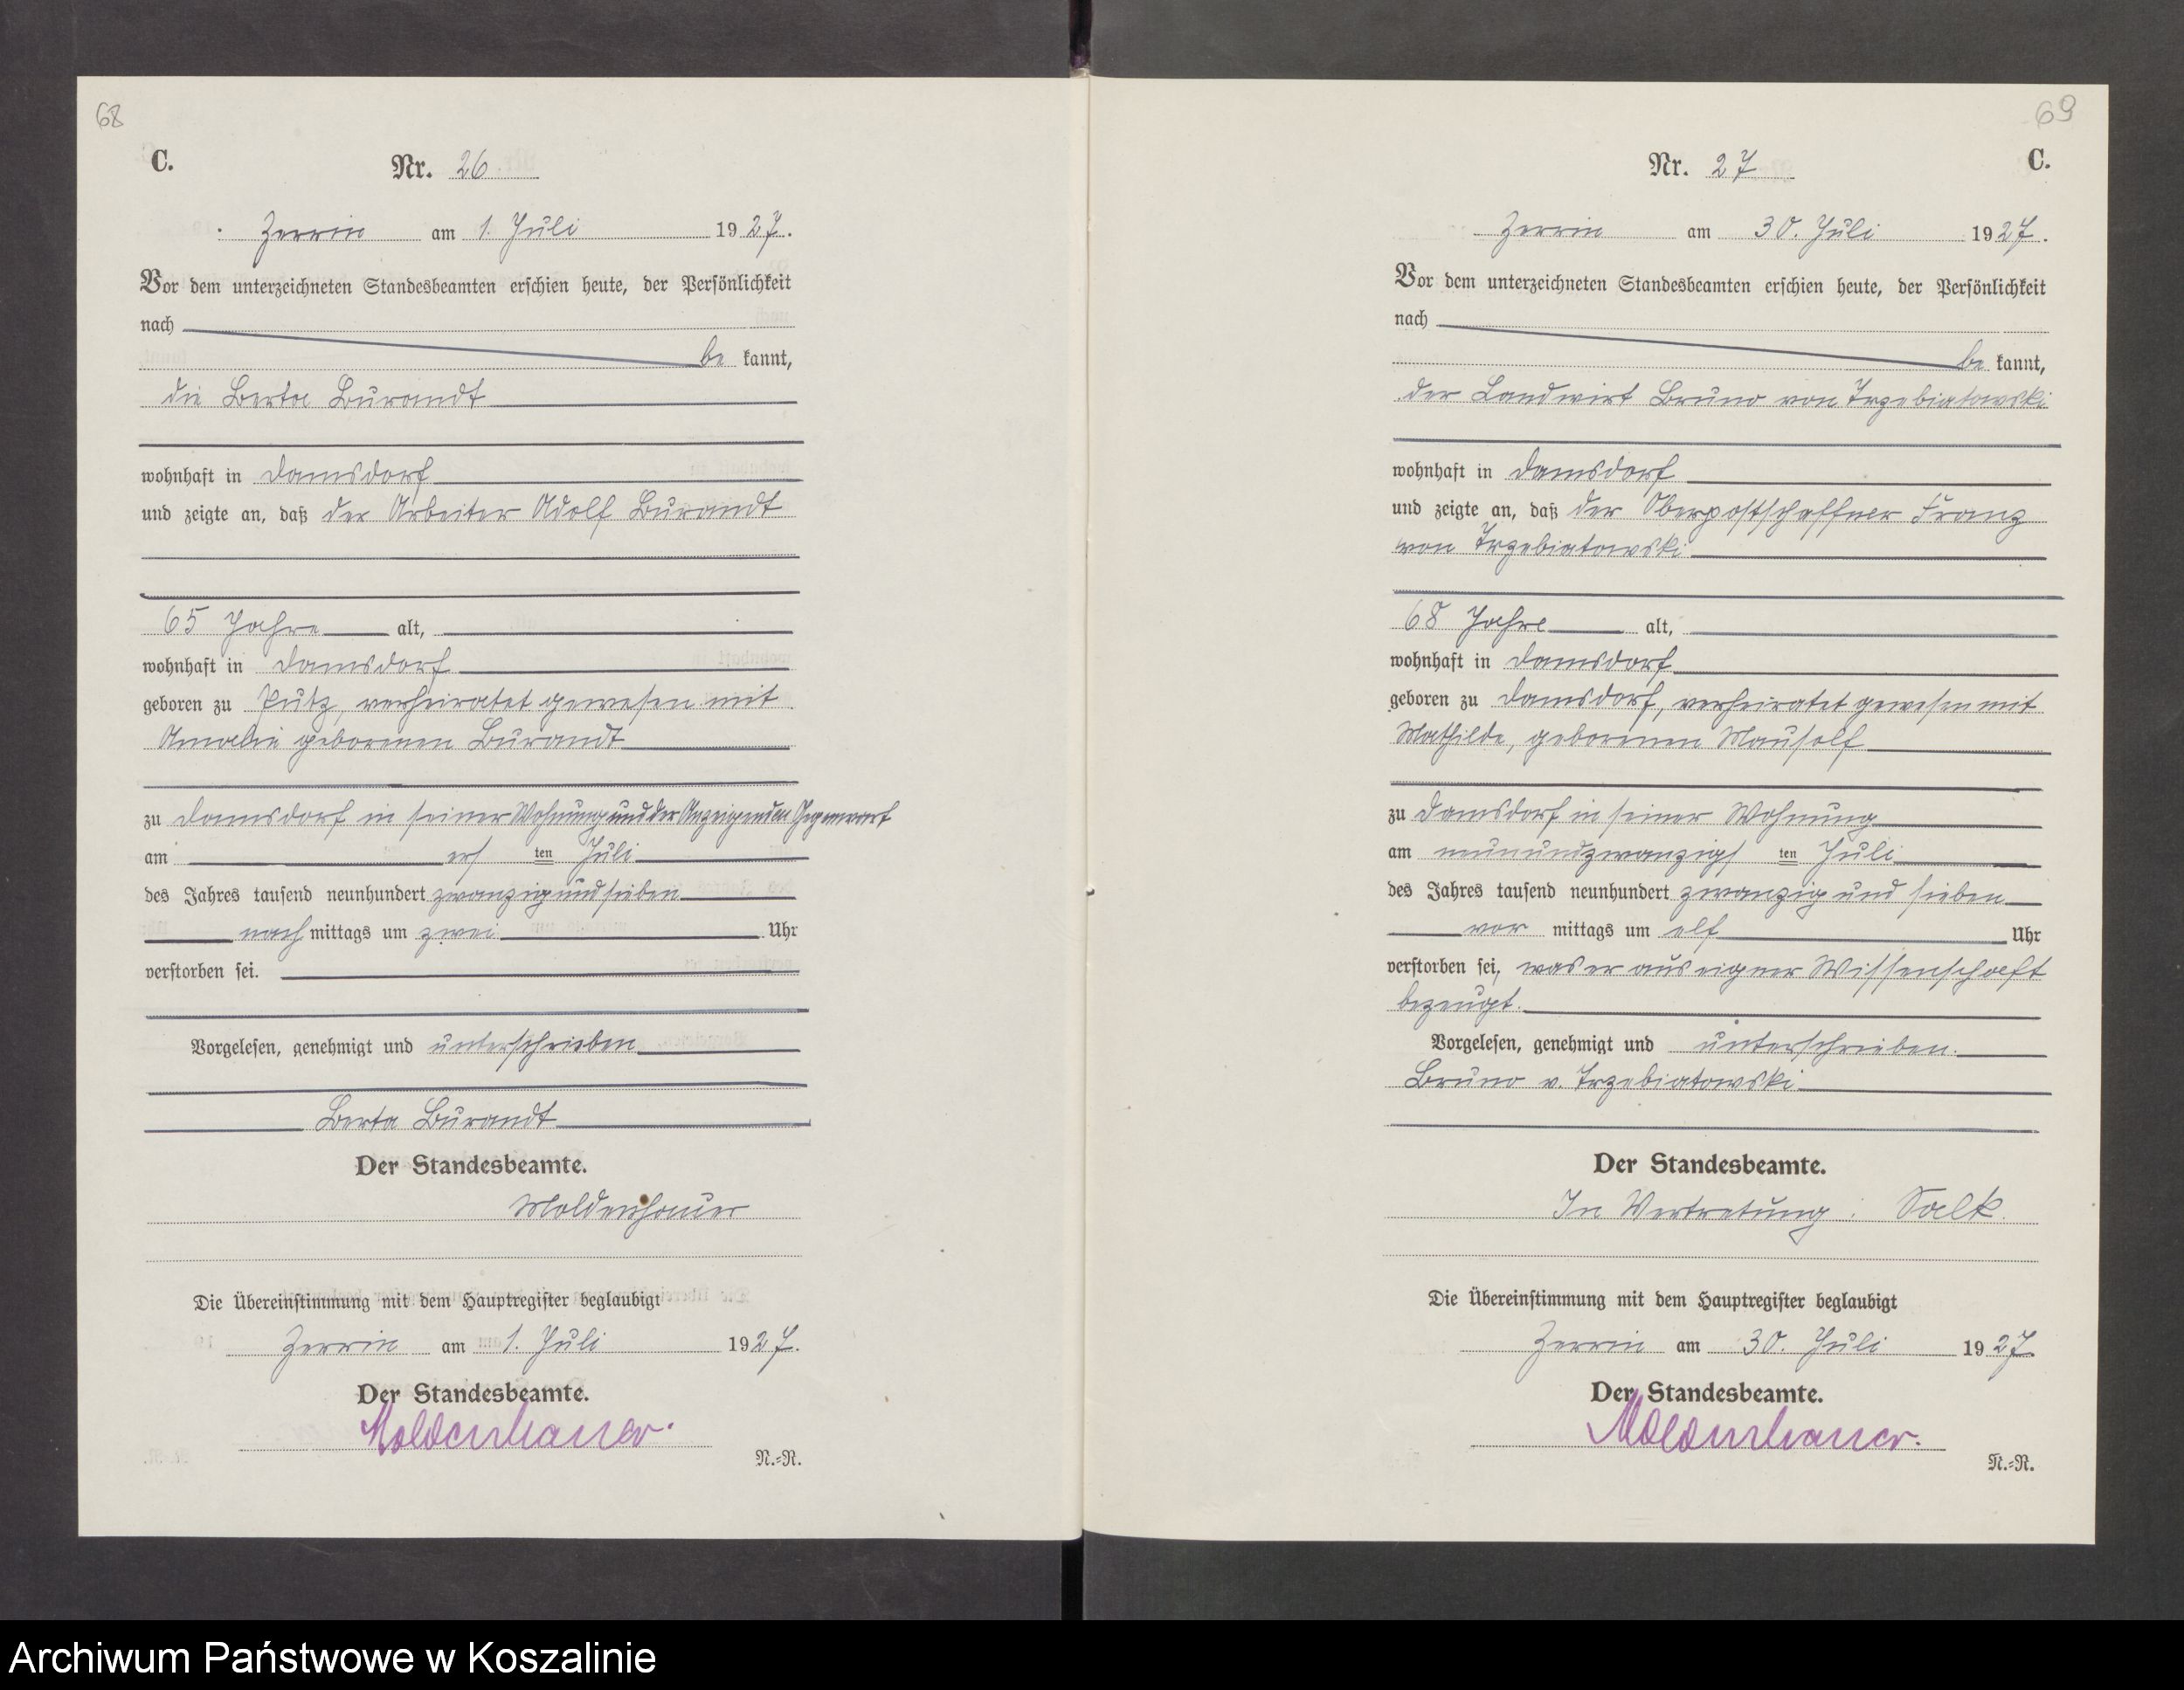 68
C.
Nr. 26
Zerrin am 1. Juli 1927.
Vor dem unterzeichneten Standesbeamten erschien heute, der Persönlichkeit
nach
be kannt,
die Berta Burandt
wohnhaft in Damsdorf
und zeigte an, daß der Arbeiter Adolf Burandt
65 Jahre alt,
wohnhaft in Damsdorf
geboren zu , verheiratet gewesen mit
Amalie geborenen Burandt
zu Damsdorf in seiner Wohnung und der Anzeigenden Gegenwart
am ers ten Juli
des Jahres tausend neunhundert zwanzig und sieben
nach mittags um zwei Uhr
verstorben sei.
Vorgelesen, genehmigt und unterschrieben
Berta Burandt
Der Standesbeamte.
Moldenhauer
Die Übereinstimmung mit dem Hauptregister beglaubigt
Zerrin am 1. Juli 1927.
Der Standesbeamte.
Moldenhauer.
N.=R.
69
Nr. 27
C.
Zerrin am 30. Juli 1927.
Vor dem unterzeichneten Standesbeamten erschien heute, der Persönlichkeit
nach
be kannt,
der Landwirt Bruno von Trzebiatowski
wohnhaft in Damsdorf
und zeigte an, daß der Oberpostschaffner Franz
von Trzebiatowski
68 Jahre alt,
wohnhaft in Damsdorf
geboren zu Damsdorf, verheiratet gewesen mit
Mathilde, geborenen Mausolf
zu Damsdorf in seiner Wohnung
am neunundzwanzigs ten Juli
des Jahres tausend neunhundert zwanzig und sieben
vor mittags um elf Uhr
verstorben sei, was er aus eigner Wissenschaft
bezeugt.
Vorgelesen, genehmigt und unterschrieben.
Bruno v. Trzebiatowski
Der Standesbeamte.
In Vertretung: Salk.
Die Übereinstimmung mit dem Hauptregister beglaubigt
Zerrin am 30. Juli 1927.
Der Standesbeamte.
Moldenhauer.
N.=R.
Archiwum Państwowe w Koszalinie